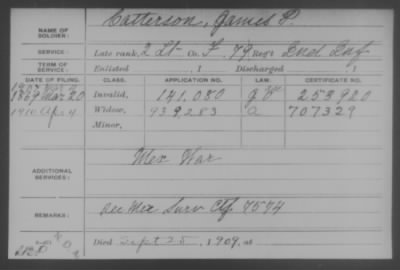 NAME OF SOLDIER: Catterson, James P.
SERVICE: Late rank, 2 Lt. Co. F, 79 Reg't Ind Inf
TERM OF SERVICE: Enlisted , 1 Discharged , 1
DATE OF FILING. CLASS. APPLICATION NO. LAW. CERTIFICATE NO.
1869 Mar 20 Invalid, 141.080 253920
1910 Apr 4 Widow, 939283 a 707329
Minor,
ADDITIONAL SERVICES: Mex War
REMARKS: See Mex Surv Ctf 7574
Died Sept 25, 1909, at